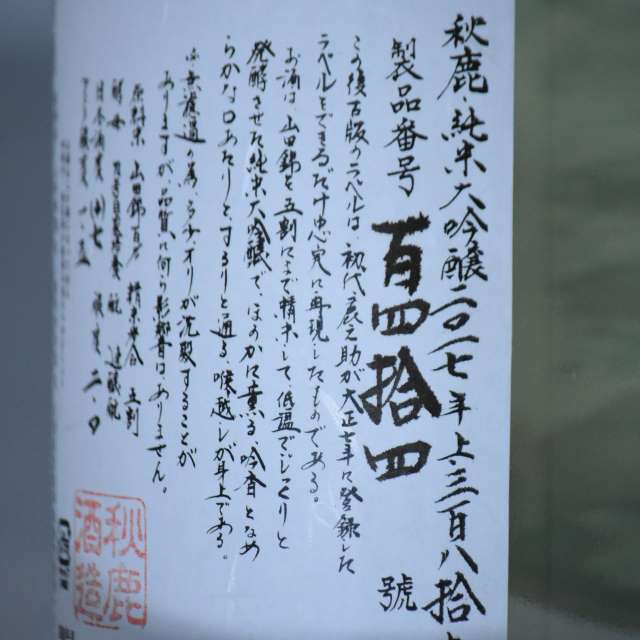 秋鹿純米大吟醸二〇一七年上三百八拾
製品番号 百四拾四 號
この復古版のラベルは、初代鹿之助が大正七年に登録した
ラベルをできるだけ忠実に再現したものである。
お酒は、山田錦を五割にまで精米して低温でじっくりと
発酵させた純米大吟醸で、ほのかに薫る吟香となめ
らかな口あたりとするりと通る喉越しが身上である。
は無濾過の為、うすオリが沈殿することが
ありますが品質に何ら影響はありません。
原料米 山田錦百% 精米歩合 五割
秋鹿
酒造